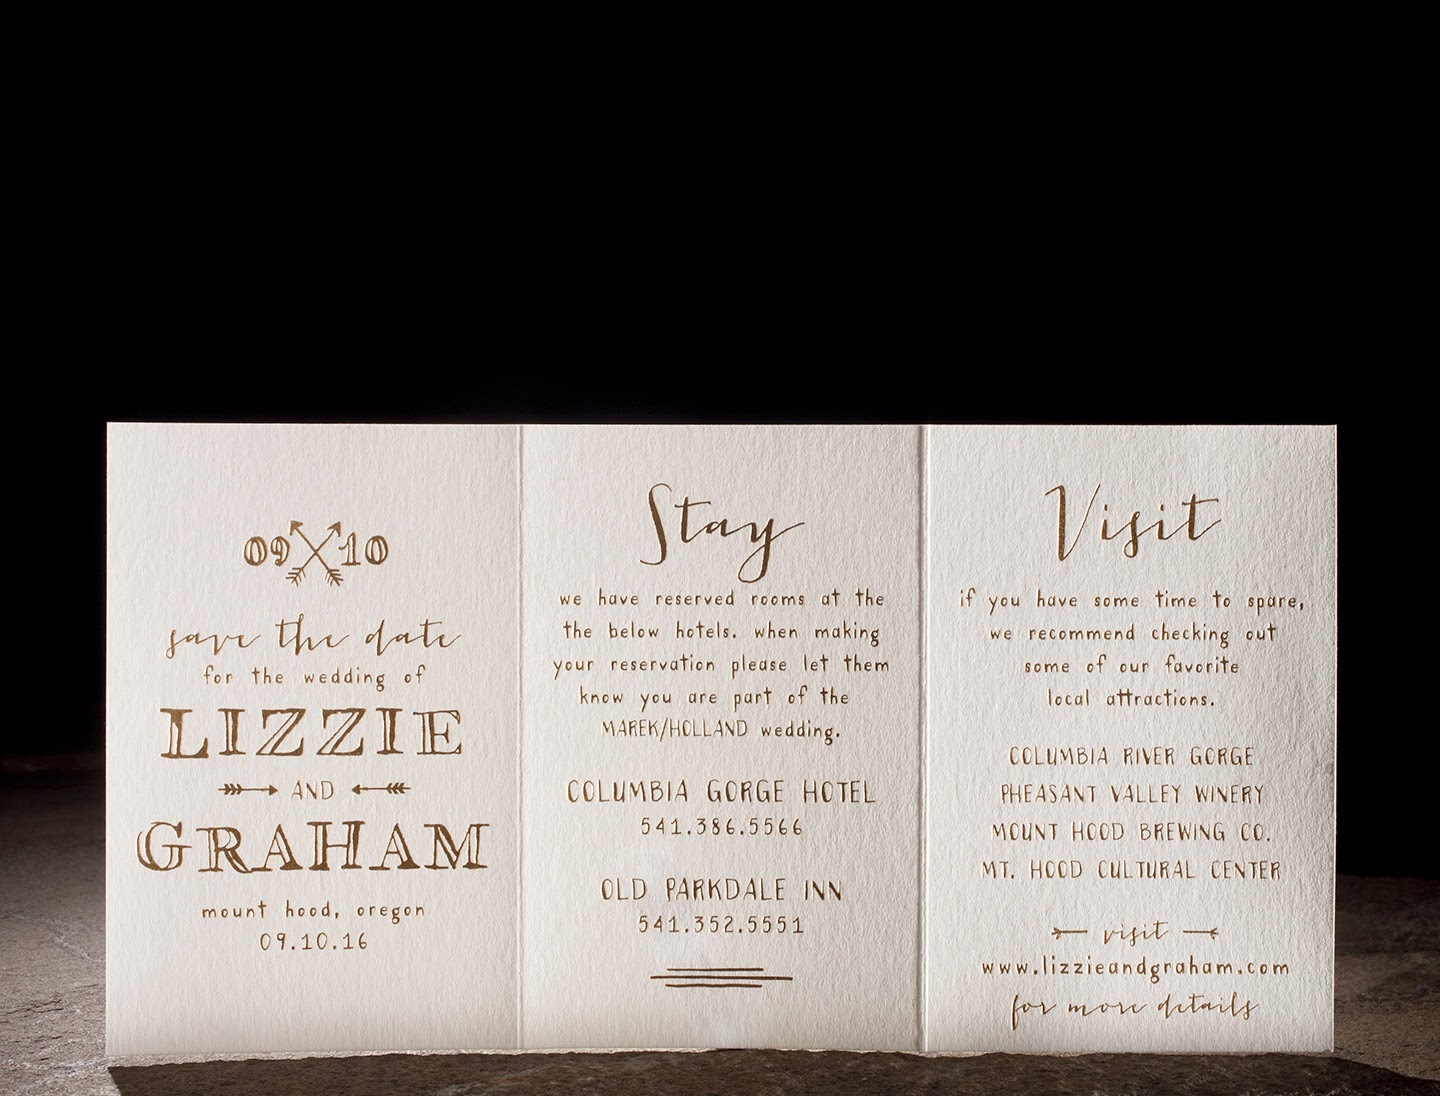 09 10
save the date
for the wedding of
LIZZIE
AND
GRAHAM
mount hood, oregon
09.10.16
Stay
we have reserved rooms at the
the below hotels. when making
your reservation please let them
know you are part of the
MAREK/HOLLAND wedding.
COLUMBIA GORGE HOTEL
541.386.5566
OLD PARKDALE INN
541.352.5551
Visit
if you have some time to spare,
we recommend checking out
some of our favorite
local attractions.
COLUMBIA RIVER GORGE
PHEASANT VALLEY WINERY
MOUNT HOOD BREWING CO.
MT. HOOD CULTURAL CENTER
visit
www.lizzieandgraham.com
for more details